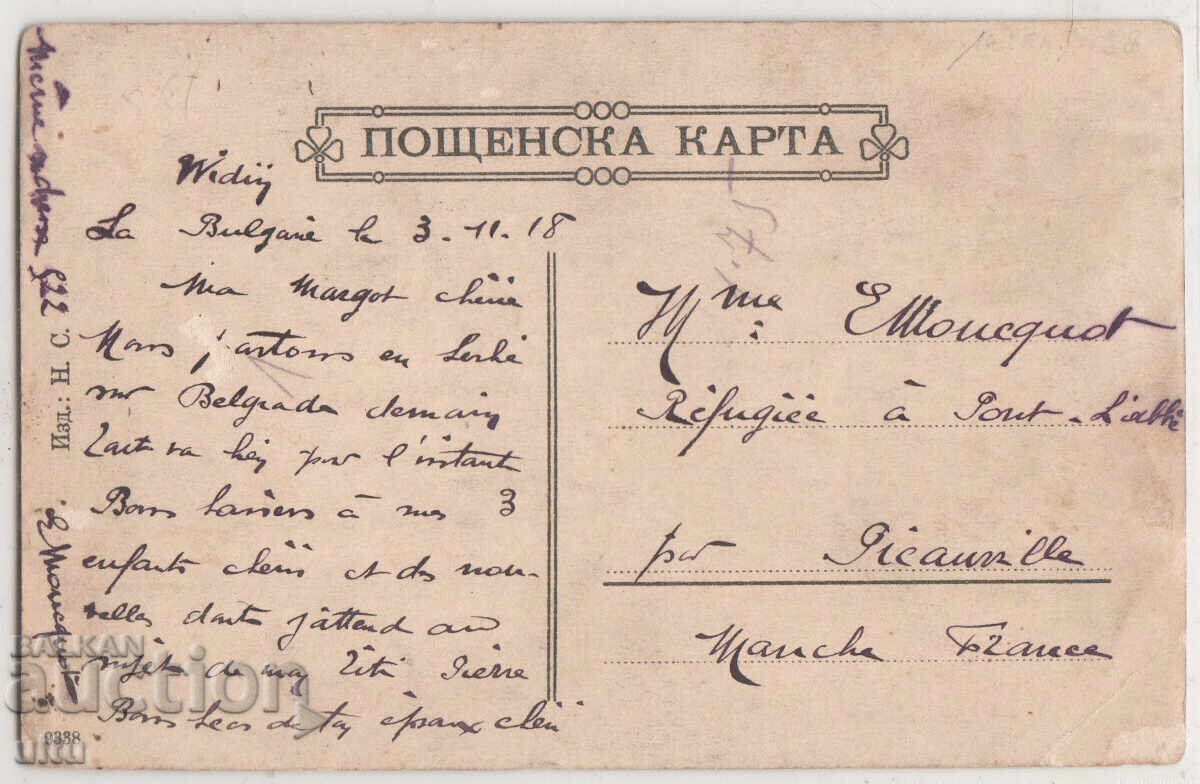 ПОЩЕНСКА КАРТА
Widin
La Bulgarie le 3.11.18
Ma Margot chérie
Nous partons en Serbie
sur Belgrade demain
Tout va bien pour l'instant
Bons baisers à mes 3
enfants chéris et des nou-
velles dont j'attend au
sujet de mon Titi Pierre
Bons becs de ton époux chéri
Mme E Moucquot
Réfugiée à Pont-L'abbé
par Picauville
Manche France
même adresse 522
Изд.: Н. С.
E Moucquot
9338
1.75
BALKAN
auction
ultu